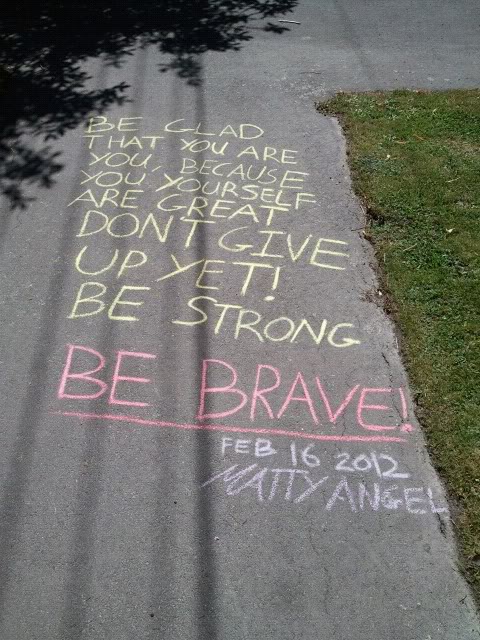 BE GLAD
THAT YOU ARE
YOU, BECAUSE
YOU YOURSELF
ARE GREAT
DONT GIVE
UP YET!
BE STRONG
BE BRAVE!
FEB 16 2012
MATTY ANGEL